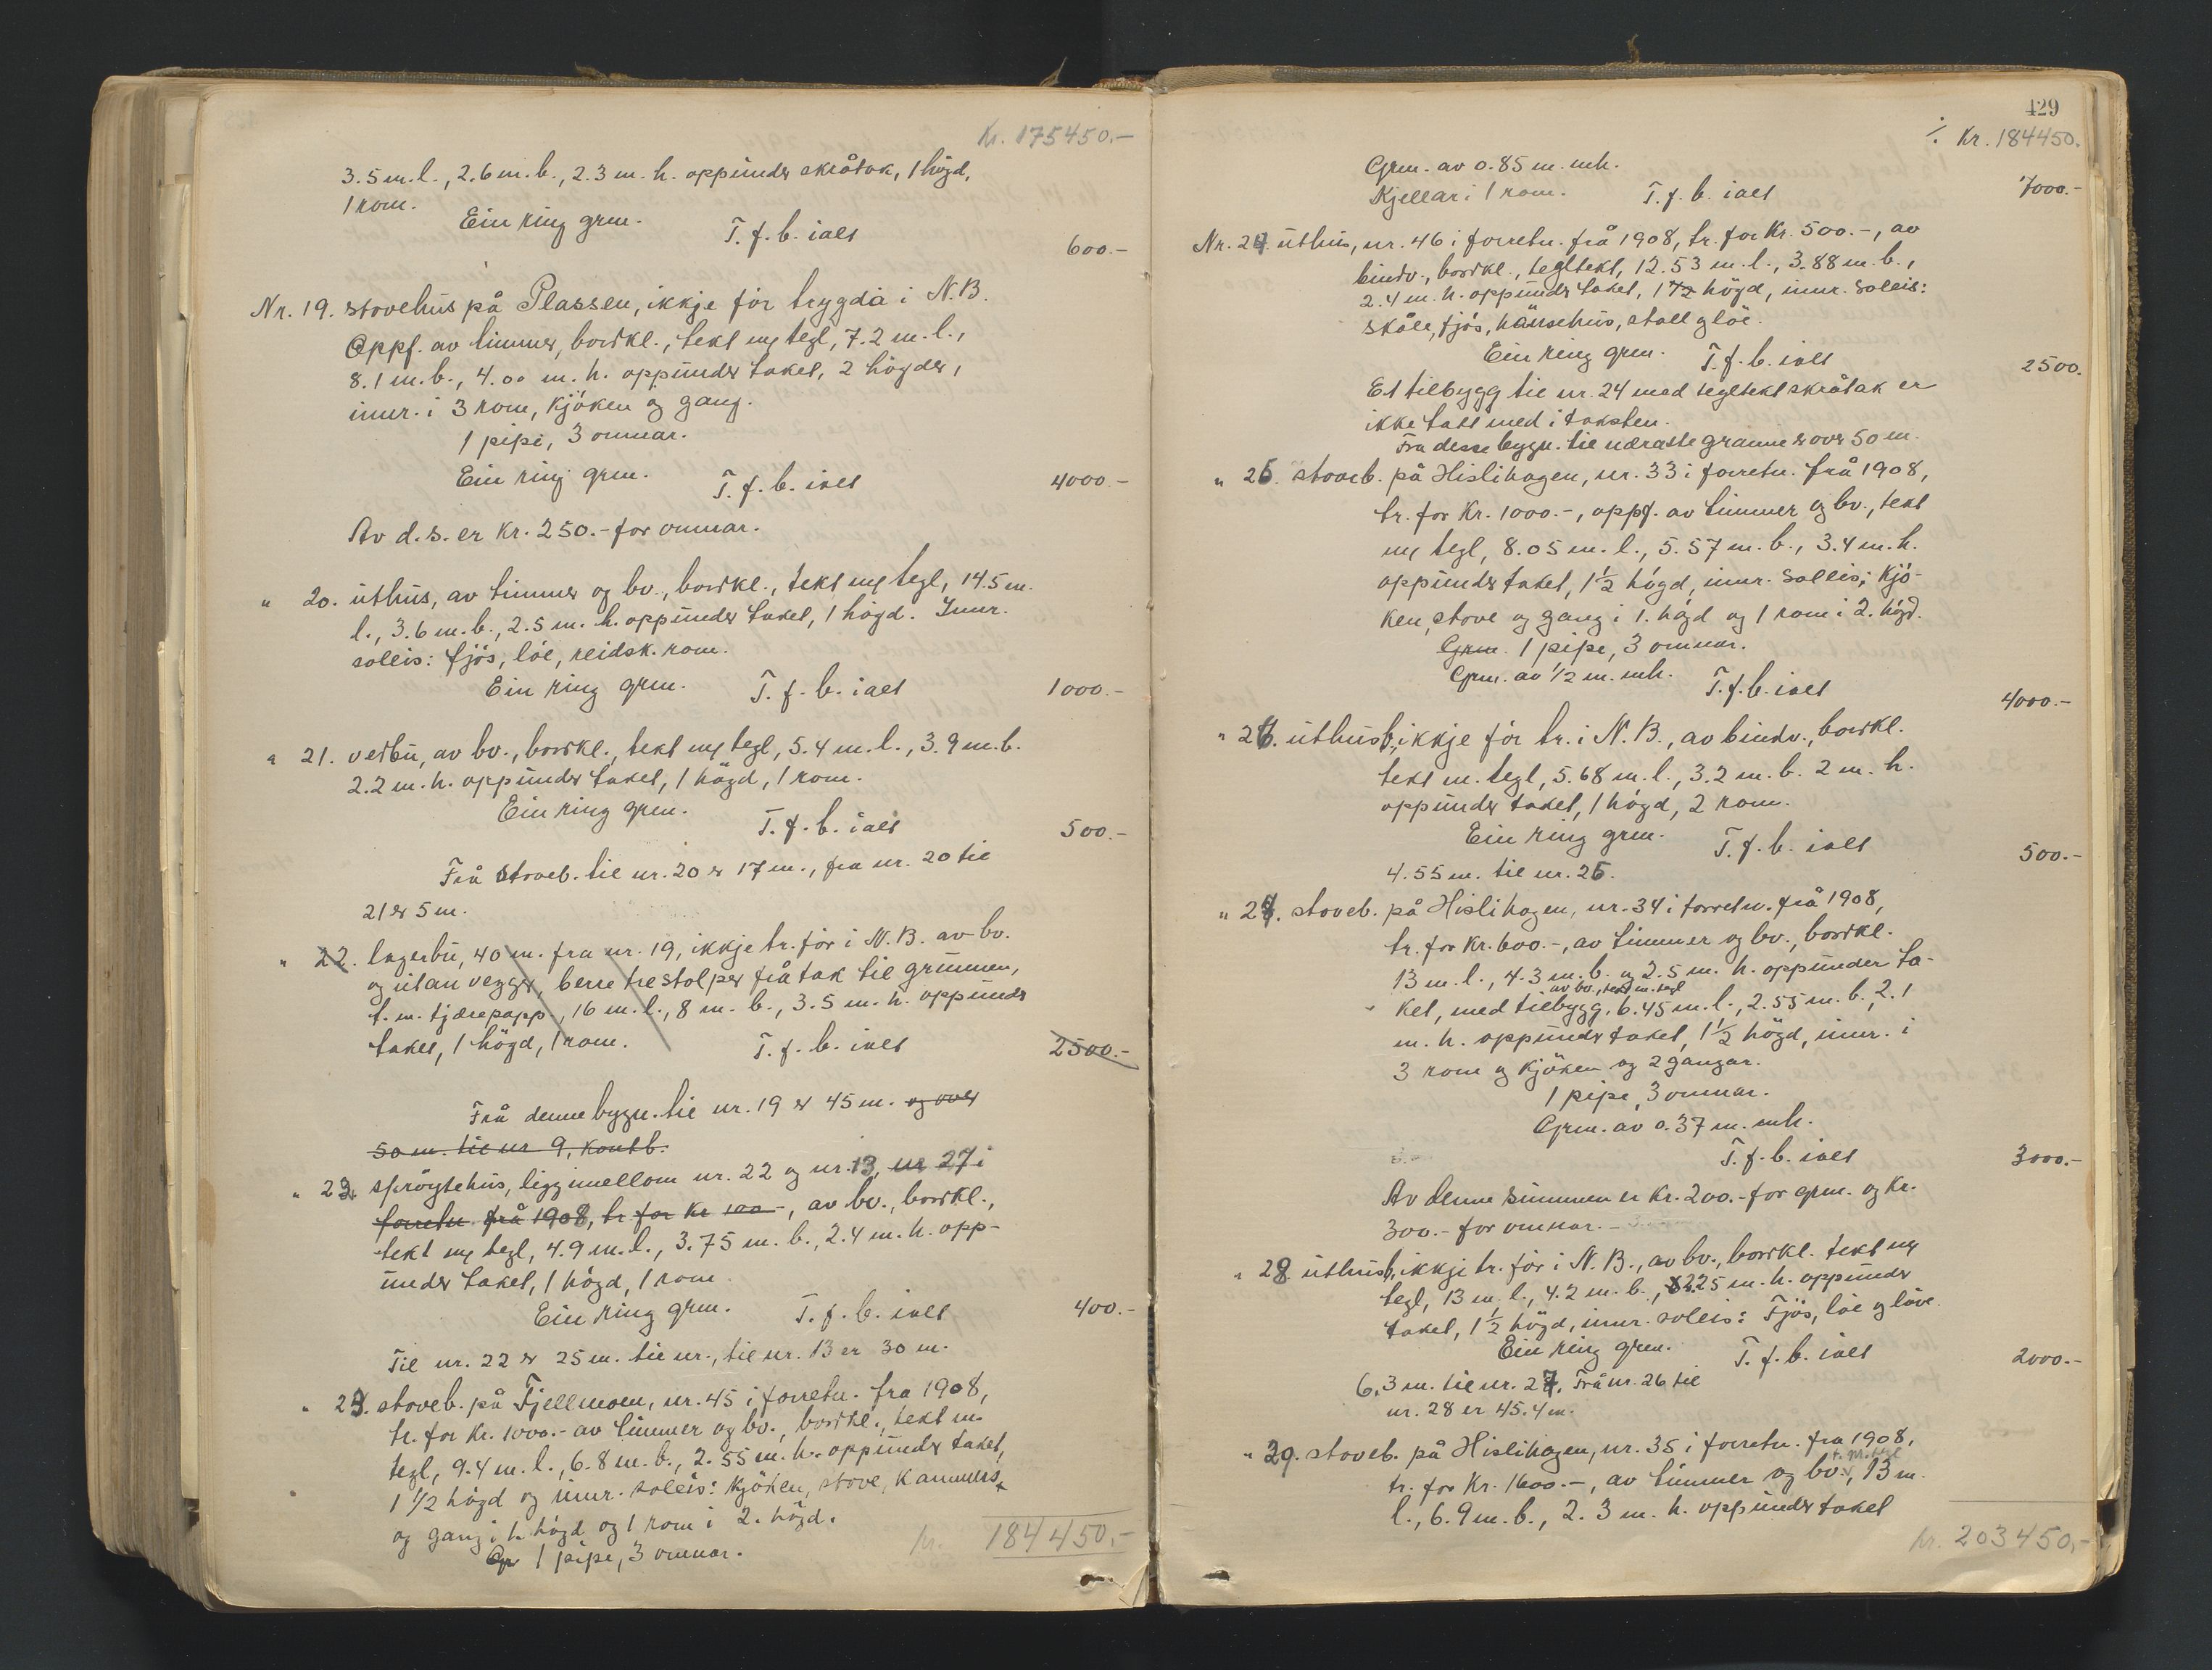 Kr. 175450.-
3.5 m. l., 2.6 m. b., 2.3 m. h. oppunder skråtak, 1 högd,
1 rom.
Ein ring grm. T. f. b. ialt 600.-
Nr. 19. stovehus på Plassen, ikkje för trygda i N.B.
Oppf. av timmer, bordkl., tekt m/ tegl, 7.2 m. l.,
8.1 m. b., 4.00 m. h. oppunder taket, 2 högder,
innr. i 3 rom, kjöken og gang.
1 pipe, 3 omnar.
Ein ring grm. T. f. b. ialt 4000.-
Av d. s. er kr. 250.- for omnar.
" 20. uthus, av timmer og bv., bordkl., tekt m/ tegl, 14.5 m.
l., 3.6 m. b., 2.5 m. h. oppunder taket, 1 högd. Innr.
soleis: fjös, löe, reidsk. rom.
Ein ring grm. T. f. b. ialt 1000.-
" 21. vedbu, av bv., bordkl., tekt m/ tegl, 5.4 m. l., 3.9 m. b.
2.2 m. h. oppunder taket, 1 högd, 1 rom.
Ein ring grm. T. f. b. ialt 500.-
Frå stoveb. til nr. 20 er 17 m., fra nr. 20 til
21 er 5 m.
" 22. lagerbu, 40 m. fra nr. 19, ikkje tr. för i N.B. av bv.
og utan vegger, berre trestolper frå tak til grunnen,
t. m. tjærepapp, 16 m. l., 8 m. b., 3.5 m. h. oppunder
taket, 1 högd, 1 rom. T. f. b. ialt 2500.-
Frå denne bygn. til nr. 19 er 45 m. og over
50 m. til nr 9, kontb.
" 22. spröytehus, ligg imellom nr. 22 og nr. 13, nr 27 i
forretn. frå 1908, tr for kr 100-, av bv., bordkl.,
tekt m/ tegl, 4.9 m. l., 3.75 m. b., 2.4 m. h. opp-
under taket, 1 högd, 1 rom.
Ein ring grm. T. f. b. ialt 400.-
Til nr. 22 er 25 m. til nr., til nr. 13 er 30 m.
" 23. stoveb. på Fjellmoen, nr. 45 i forretn. fra 1908,
tr. for kr. 1000.- av timmer og bv., bordkl., tekt m.
tegl, 9.4 m. l., 6.8 m. b., 2.55 m. h. oppunder taket,
1 1/2 högd og innr. soleis: kjöken, stove, kammers
og gang i 1. högd og 1 rom i 2. högd.
Gr 1 pipe, 3 omnar.
kr. 184450,-
429
./. Kr. 184450.
Grm. av 0.85 m. mh.
Kjellar i 1 rom. T. f. b. ialt 7000.-
Nr. 24. uthus, nr. 46 i forretn. frå 1908, tr. for Kr. 500.-, av
bindv., bordkl., tegltekt, 12.53 m. l., 3.88 m. b.,
2.4 m. h. oppunder taket, 1 1/2 högd, innr. soleis:
skåle, fjös, hönsehus, stall og löe.
Ein ring grm. T. f. b. ialt 2500.
Et tilbygg til nr. 24 med tegltekt skråtak er
ikke tatt med i taksten.
Fra desse bygn. til næraste granne er over 50 m.
" 25. stoveb. på Hislihagen, nr. 33 i forretn. frå 1908,
tr. for Kr. 1000.-, oppf. av timmer og bv., tekt
m/ tegl, 8.05 m. l., 5.57 m. b., 3.4 m. h.
oppunder taket, 1 1/2 högd, innr. soleis: kjö-
ken, stove og gang i 1. högd og 1 rom i 2. högd.
Grm. 1 pipe, 3 omnar.
Grm. av 1/2 m. mh. T. f. b. ialt 4000.-
" 26. uthusb, ikkje för tr. i N.B., av bindv., bordkl.
tekt m. tegl, 5.68 m. l., 3.2 m. b. 2 m. h.
oppunder taket, 1 högd, 2 rom.
Ein ring grm. T. f. b. ialt 500.-
4.55 m. til nr. 25.
" 27. stoveb. på Hislihagen, nr. 34 i forretn. frå 1908,
tr. for kr. 600.-, av timmer og bv., bordkl.
13 m. l., 4.3 m. b. og 2.5 m. h. oppunder ta-
av bv., tekt m. tegl
ket, med tilbygg, 6.45 m. l., 2.55 m. b., 2.1
m. h. oppunder taket, 1 1/2 högd, innr. i
3 rom og kjöken og 2 gangar.
1 pipe, 3 omnar.
Grm. av 0.37 m. mh.
T. f. b. ialt 3000.-
Av denne summen er kr. 200.- for grm. og kr.
300.- for omnar.-
" 28. uthusb, ikkje tr. för i N.B., av bv., bordkl. tekt m/
tegl, 13 m. l., 4.2 m. b., 2.25 m. h. oppunder
taket, 1 1/2 högd, innr. soleis: Fjös, löe og löve.
Ein ring grm. T. f. b. ialt 2000.-
6.3 m. til nr. 27. Frå nr. 26 til
nr. 28 er 45.4 m.
" 29. stoveb. på Hislihagen, nr. 35 i forretn. fra 1908,
t. m. tegl
tr. for Kr. 1600.-, av timmer og bv., 13 m.
l., 6.9 m. b., 2.3 m. h. oppunder taket
kr. 203450,-